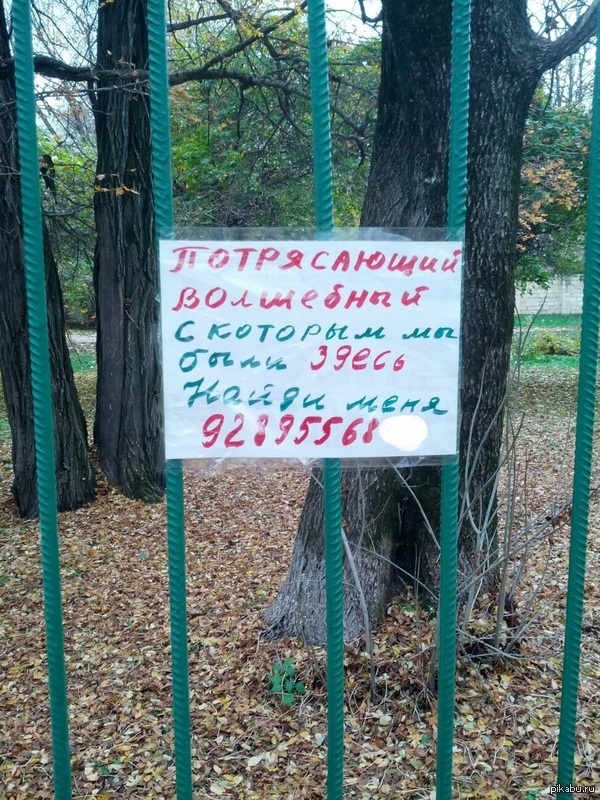 ПОТРЯСАЮЩИЙ
ВОЛШЕБНЫЙ
С КОТОРЫМ МЫ
были ЗДЕСЬ
Найди меня
92895568
pikabu.ru